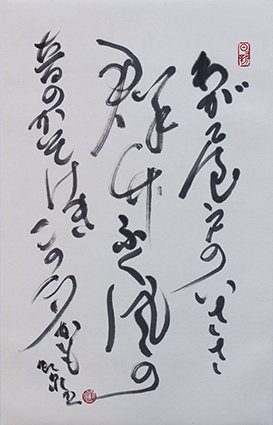 わが屋戸のいささ
群竹ふく風の
音のかそけき この夕かも